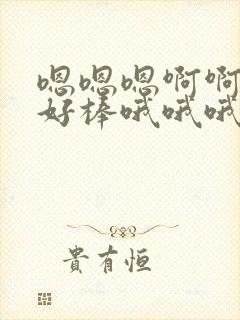 嗯嗯嗯啊啊
好棒哦哦哦
貴有恒